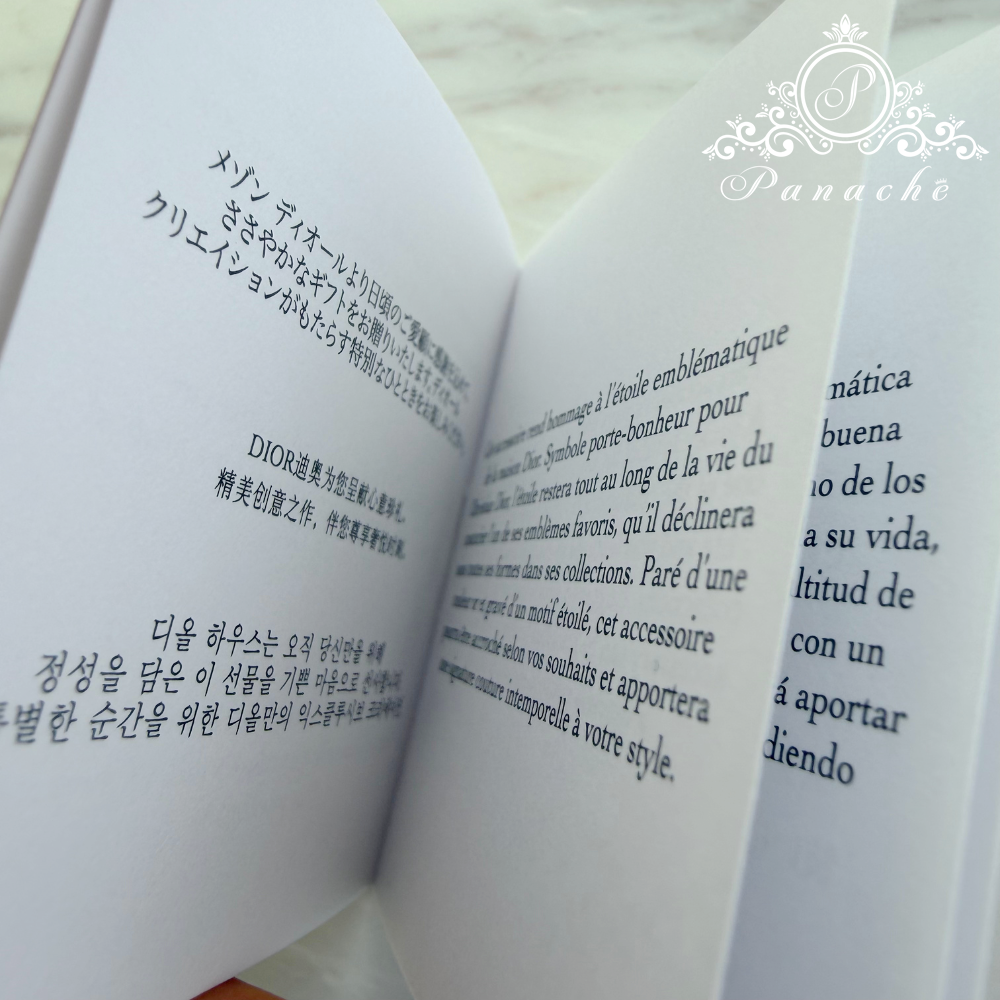 メゾン ディオールより日頃のご愛顧に感謝を込めて、
ささやかなギフトをお贈りいたします。ディオール
クリエイションがもたらす特別なひとときをお楽しみください。
DIOR迪奥为您呈献心重臻礼。
精美创意之作，伴您尊享奢悦时刻。
디올 하우스는 오직 당신만을 위해
정성을 담은 이 선물을 기쁜 마음으로 선사합니다.
특별한 순간을 위한 디올만의 익스클루시브 크리에이션
accessoire rend hommage à l'étoile emblématique
de la maison Dior. Symbole porte-bonheur pour
Monsieur Dior, l'étoile restera tout au long de la vie du
couturier l'un de ses emblèmes favoris, qu'il déclinera
sous toutes ses formes dans ses collections. Paré d'une
couleur or et gravé d'un motif étoilé, cet accessoire
pourra être accroché selon vos souhaits et apportera
une signature couture intemporelle à votre style.
mática
buena
no de los
a su vida,
ltitud de
con un
á aportar
diendo
P
Panachē